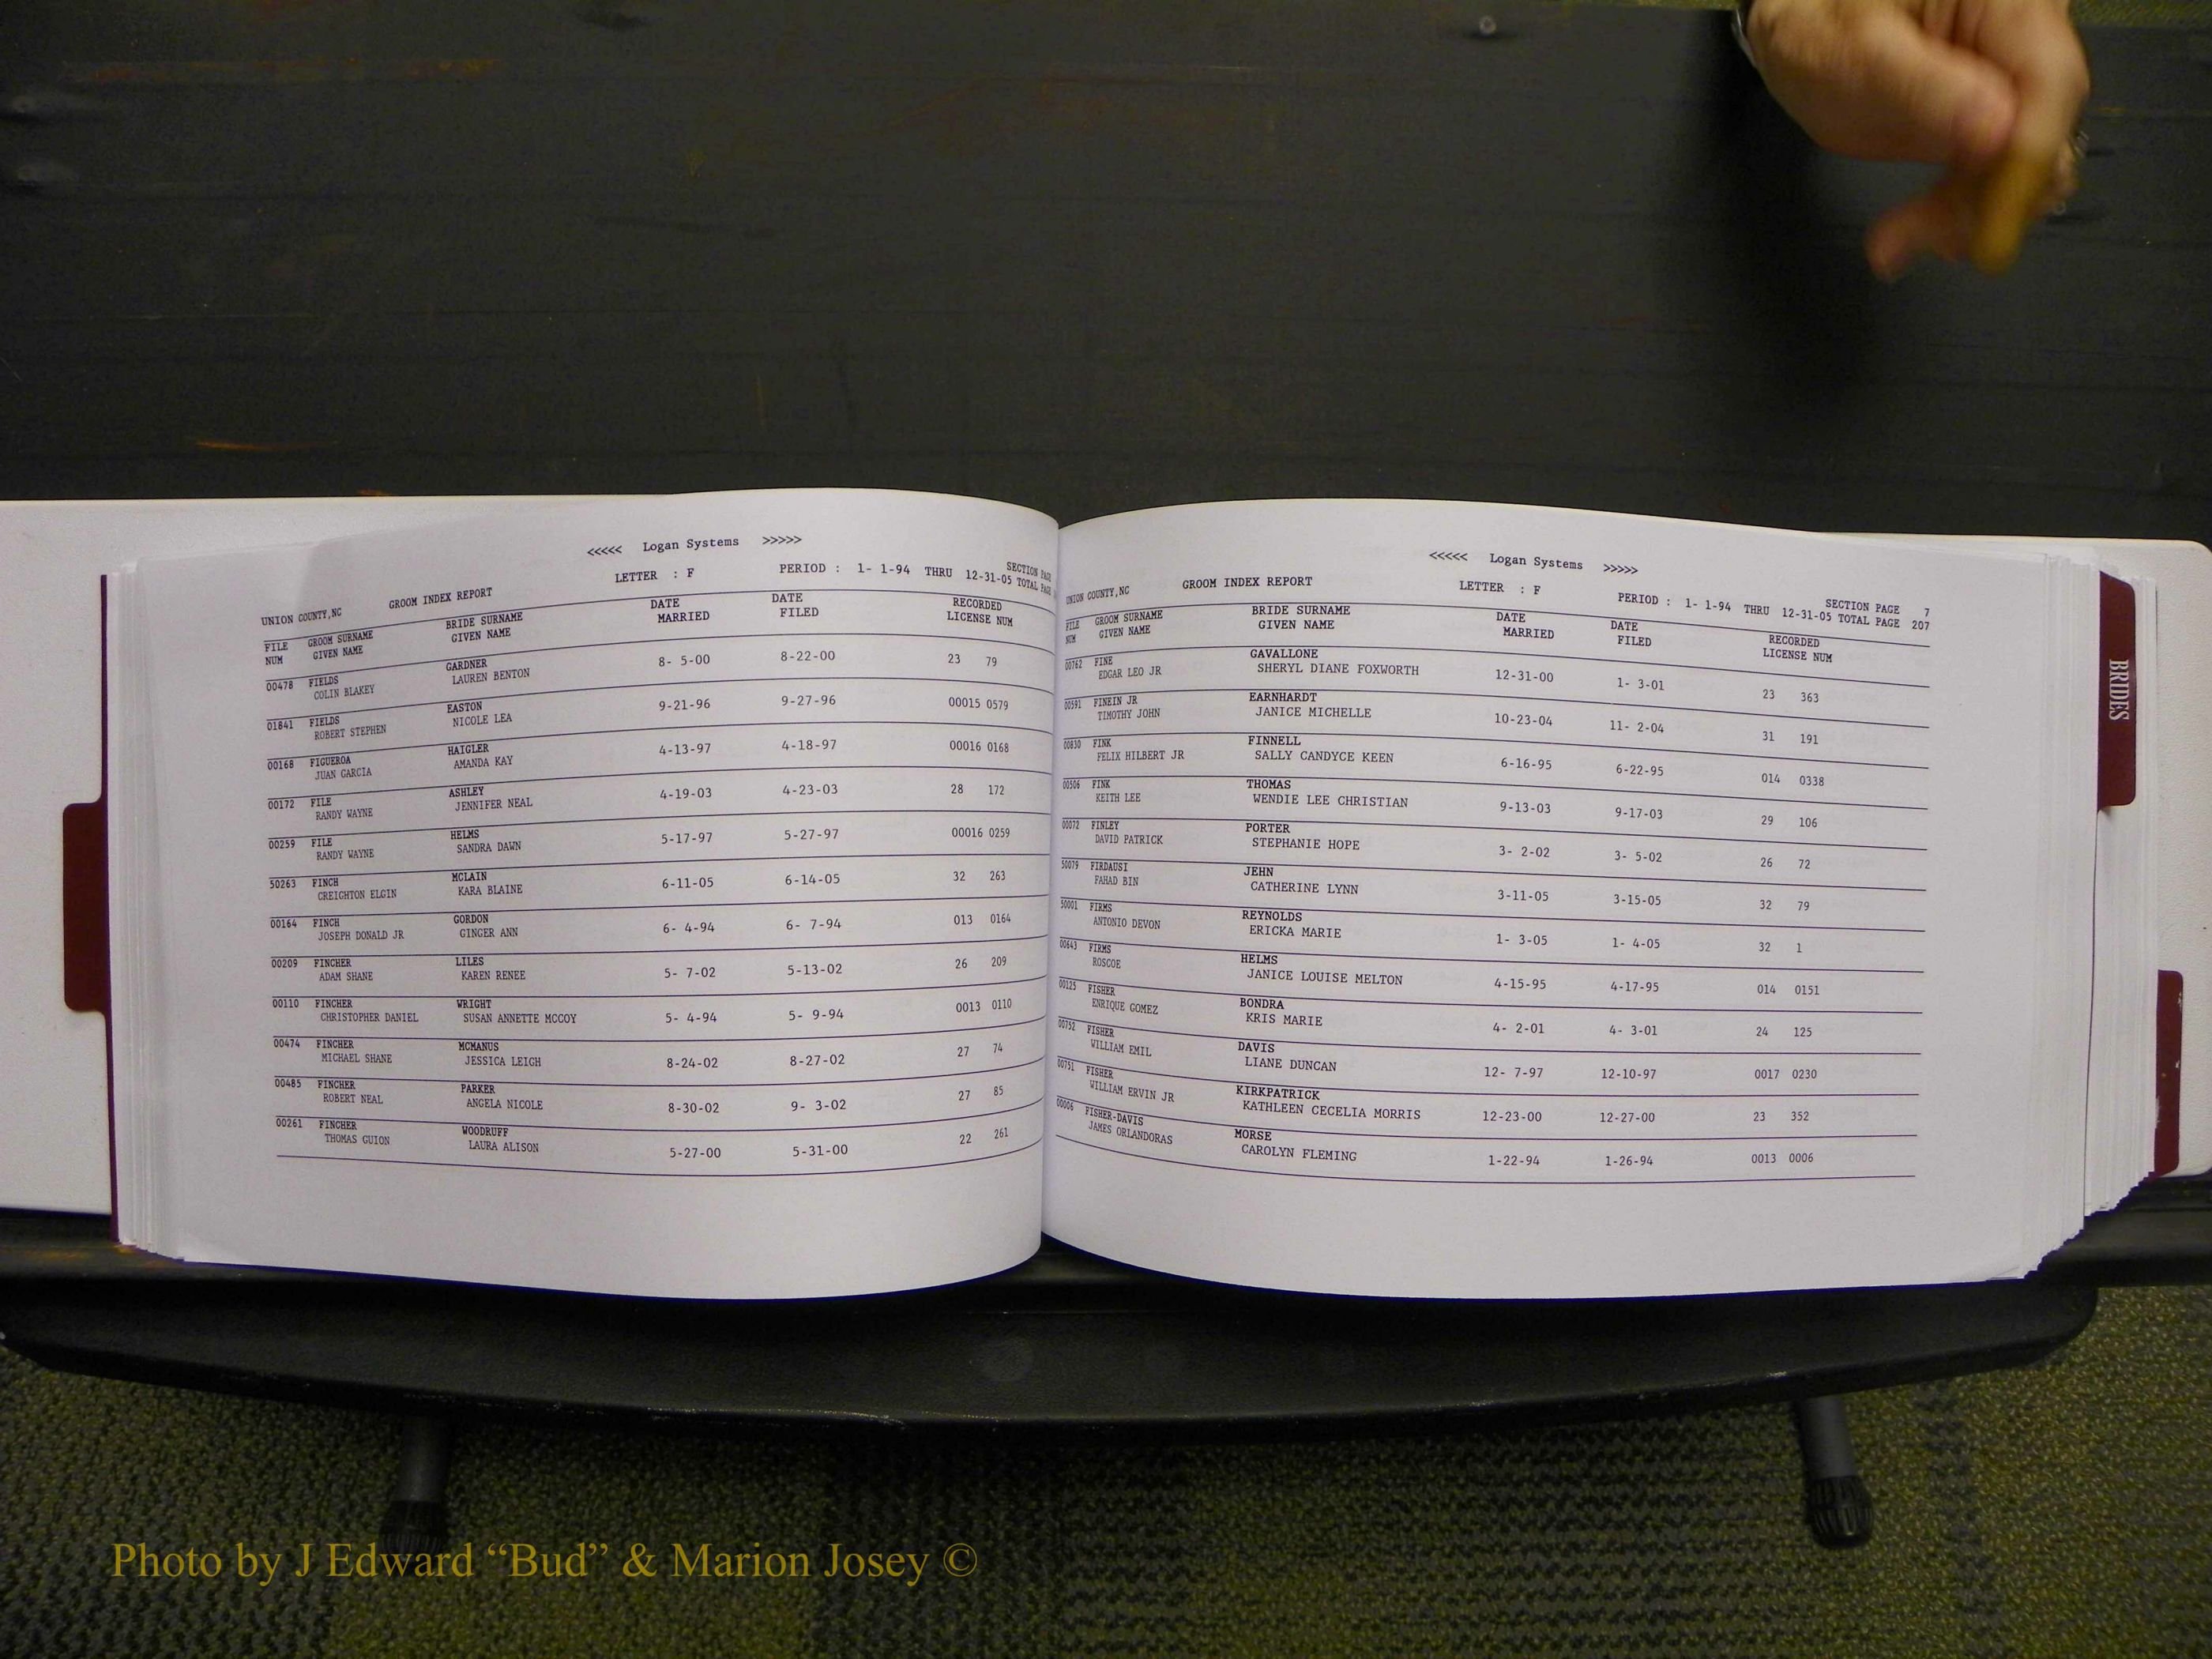 <<<<< Logan Systems >>>>>
LETTER : F PERIOD : 1- 1-94 THRU 12-31-05 SECTION PAGE
TOTAL PAGE
UNION COUNTY,NC GROOM INDEX REPORT
FILE GROOM SURNAME BRIDE SURNAME DATE DATE RECORDED
NUM GIVEN NAME GIVEN NAME MARRIED FILED LICENSE NUM
00478 FIELDS GARDNER 8- 5-00 8-22-00 23 79
COLIN BLAKEY LAUREN BENTON
01841 FIELDS EASTON 9-21-96 9-27-96 00015 0579
ROBERT STEPHEN NICOLE LEA
00168 FIGUEROA HAIGLER 4-13-97 4-18-97 00016 0168
JUAN GARCIA AMANDA KAY
00172 FILE ASHLEY 4-19-03 4-23-03 28 172
RANDY WAYNE JENNIFER NEAL
00259 FILE HELMS 5-17-97 5-27-97 00016 0259
RANDY WAYNE SANDRA DAWN
50263 FINCH MCLAIN 6-11-05 6-14-05 32 263
CREIGHTON ELGIN KARA BLAINE
00164 FINCH GORDON 6- 4-94 6- 7-94 013 0164
JOSEPH DONALD JR GINGER ANN
00209 FINCHER LILES 5- 7-02 5-13-02 26 209
ADAM SHANE KAREN RENEE
00110 FINCHER WRIGHT 5- 4-94 5- 9-94 0013 0110
CHRISTOPHER DANIEL SUSAN ANNETTE MCCOY
00474 FINCHER MCMANUS 8-24-02 8-27-02 27 74
MICHAEL SHANE JESSICA LEIGH
00485 FINCHER PARKER 8-30-02 9- 3-02 27 85
ROBERT NEAL ANGELA NICOLE
00261 FINCHER WOODRUFF 5-27-00 5-31-00 22 261
THOMAS GUION LAURA ALISON
<<<<< Logan Systems >>>>>
UNION COUNTY,NC GROOM INDEX REPORT LETTER : F PERIOD : 1- 1-94 THRU 12-31-05 SECTION PAGE 7
TOTAL PAGE 207
FILE GROOM SURNAME BRIDE SURNAME DATE DATE RECORDED
NUM GIVEN NAME GIVEN NAME MARRIED FILED LICENSE NUM
00762 FINE GAVALLONE 12-31-00 1- 3-01 23 363
EDGAR LEO JR SHERYL DIANE FOXWORTH
00591 FINEIN JR EARNHARDT 10-23-04 11- 2-04 31 191
TIMOTHY JOHN JANICE MICHELLE
00830 FINK FINNELL 6-16-95 6-22-95 014 0338
FELIX HILBERT JR SALLY CANDYCE KEEN
00506 FINK THOMAS 9-13-03 9-17-03 29 106
KEITH LEE WENDIE LEE CHRISTIAN
00072 FINLEY PORTER 3- 2-02 3- 5-02 26 72
DAVID PATRICK STEPHANIE HOPE
50079 FIRDAUSI JEHN 3-11-05 3-15-05 32 79
FAHAD BIN CATHERINE LYNN
50001 FIRMS REYNOLDS 1- 3-05 1- 4-05 32 1
ANTONIO DEVON ERICKA MARIE
00643 FIRMS HELMS 4-15-95 4-17-95 014 0151
ROSCOE JANICE LOUISE MELTON
00125 FISHER BONDRA 4- 2-01 4- 3-01 24 125
ENRIQUE GOMEZ KRIS MARIE
00752 FISHER DAVIS 12- 7-97 12-10-97 0017 0230
WILLIAM EMIL LIANE DUNCAN
00751 FISHER KIRKPATRICK 12-23-00 12-27-00 23 352
WILLIAM ERVIN JR KATHLEEN CECELIA MORRIS
00006 FISHER-DAVIS MORSE 1-22-94 1-26-94 0013 0006
JAMES ORLANDORAS CAROLYN FLEMING
BRIDES
Photo by J Edward “Bud” & Marion Josey ©